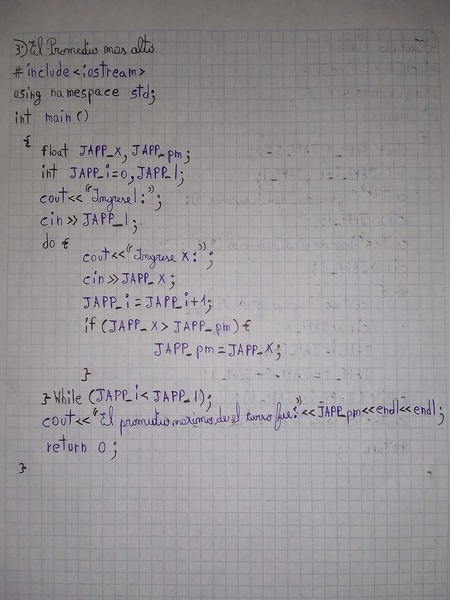 3.) El Promedio mas alto
#include<iostream>
using namespace std;
int main()
{
float JAPP_X, JAPP_pm;
int JAPP_i=0, JAPP_l;
cout<<"Ingrese l:";
cin>>JAPP_l;
do {
cout<<"Ingrese X:";
cin>>JAPP_X;
JAPP_i=JAPP_i+1;
if (JAPP_X>JAPP_pm){
JAPP_pm=JAPP_X;
}
}While (JAPP_i<JAPP_l);
cout<<"El promedio maximo de el curso fue:"<<JAPP_pm<<endl<<endl;
return 0;
}